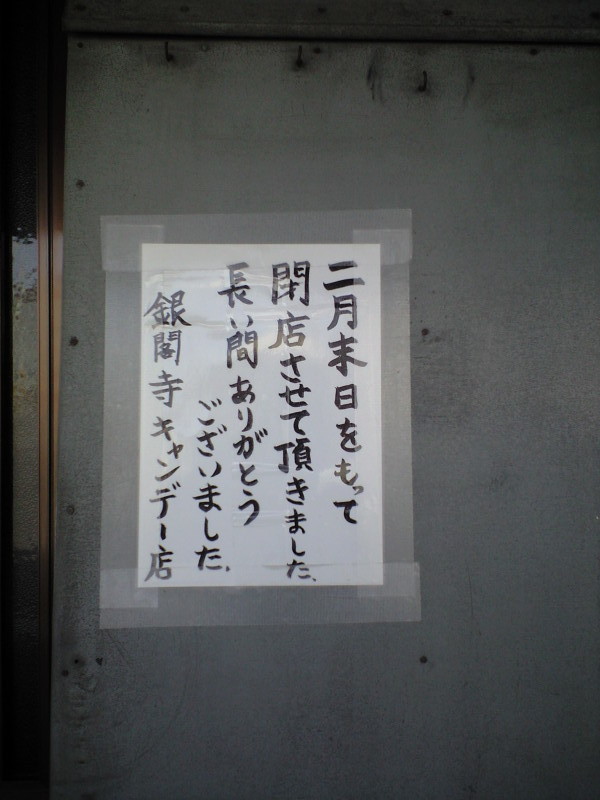 二月末日をもって
閉店させて頂きました。
長い間ありがとう
ございました。
銀閣寺キャンデー店